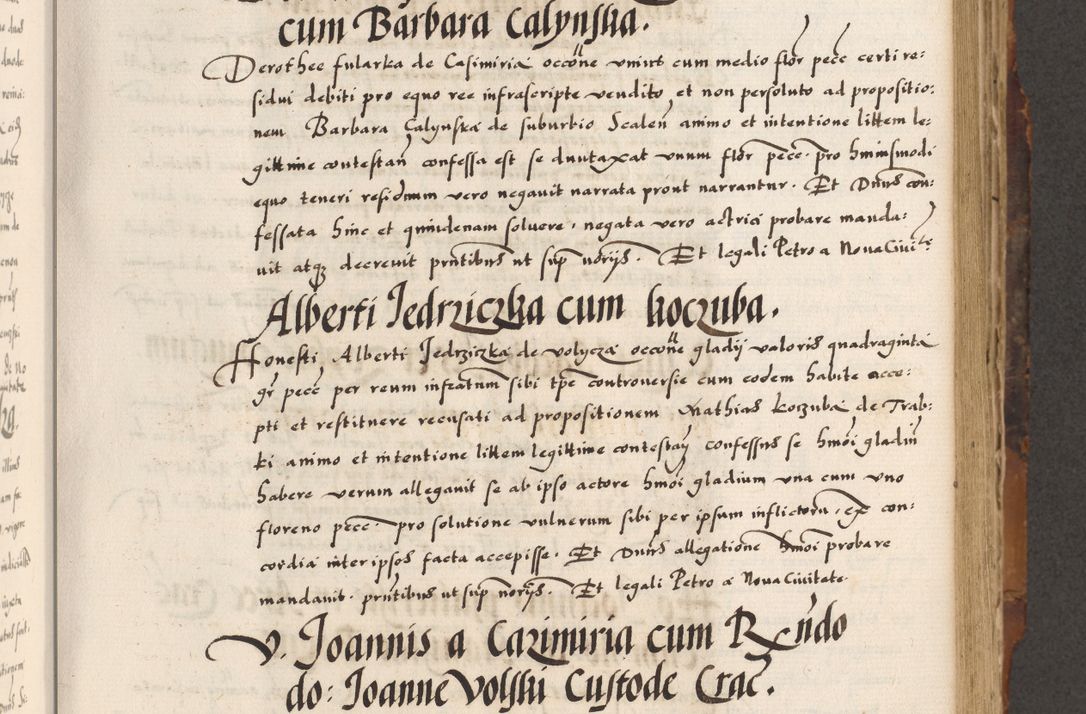 cum Barbara Calynska.
Dorothee fularka de Casimiria occõne vnius cum medio flōr pecc certi re:
sidui debiti pro equo ree infrascripte vendito et non persoluto ad propositio:
nem Barbara Calynska de suburbio Scalen animo et intentione littem le:
gittime contestan confessa est se duntaxat vnum flōr pecc. pro hmiusmodi
equo teneri residuum vero negauit narrata prout narrantur. Et Dnūs con:
fessata hinc et quindenam soluere, negata vero actrici probare manda:
uit atqz decreuit pntibus ut sup norijs. Et legali Petro a Noua Ciuit
Alberti Jedrziczka cum koczuba.
Honesti Alberti Jedrziczka de volycza occõne gladij valoris quadraginta
gr pecc per reum infratum sibi tpe controuersie cum eodem habite acce:
pti et restituere recusati ad propositionem Mathias koczuba de Trab:
ki animo et intentione littem legittime contestan confessus se hmōi gladiū
habere verum allegauit se ab ipso actore hmōi gladium una cum uno
floreno pecc. pro solutione vulnerum sibi per ipsum inflictoru, ex con:
cordia inter ipsos facta accepisse. Et Dnūs allegatione hmoi probare
mandauit. pntibus ut sup norijs. Et legali Petro a Noua Ciuitate.
V. Joannis a Cazimiria cum Rxñdo
do: Joanne Volski Custode Crac̄.